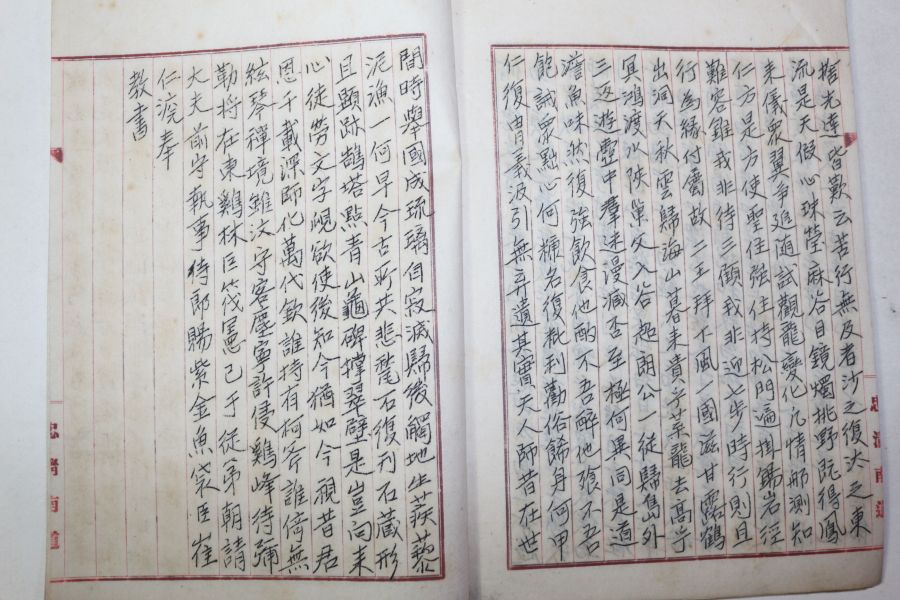 捨光達皆歎云苦行無及者沙之復汰之東
流是天假心珠瑩麻谷目鏡燭桃野既得鳳
来儀衆翼爭追隨試觀龍變化凡情那測知
仁方是方便聖住強住持松門遍掛錫岩徑
難容錐我非待三顧我非迎七步時行則且
行為緣付囑故二王拜下風一國滋甘露鶴
出洞天秋雲歸海山暮来貴乎葉龍去高乎
冥鴻渡水陜巢父入谷超朗公一從歸島外
三返遊壺中羣迷漫臧否至極何異同是道
澹無味然復強飲食他酌不吾醉他飡不吾
飽誡衆黜心何糠名復粃利勸俗餙身何甲
仁復胄義汲引無弃遺其實天人師昔在世
間時擧國成琉璃自寂滅歸後觸地生蒺藜
泥洹一何早今古所共悲甃石復刊石藏形
且顯跡鵠塔點青山龜碑撑翠壁是豈向来
心徒勞文字覛欲使後知今猶如今視昔君
恩千載深師化萬代欽誰持有柯斧誰倚無
絃琴禪境雖汏守客塵寧許侵鷄峰待彌
勒將在東鷄林臣筏憲己于從弟朝請
大夫前守執事侍郎賜紫金魚袋臣崔
仁渷奉
教書
忠清南道
忠清南道